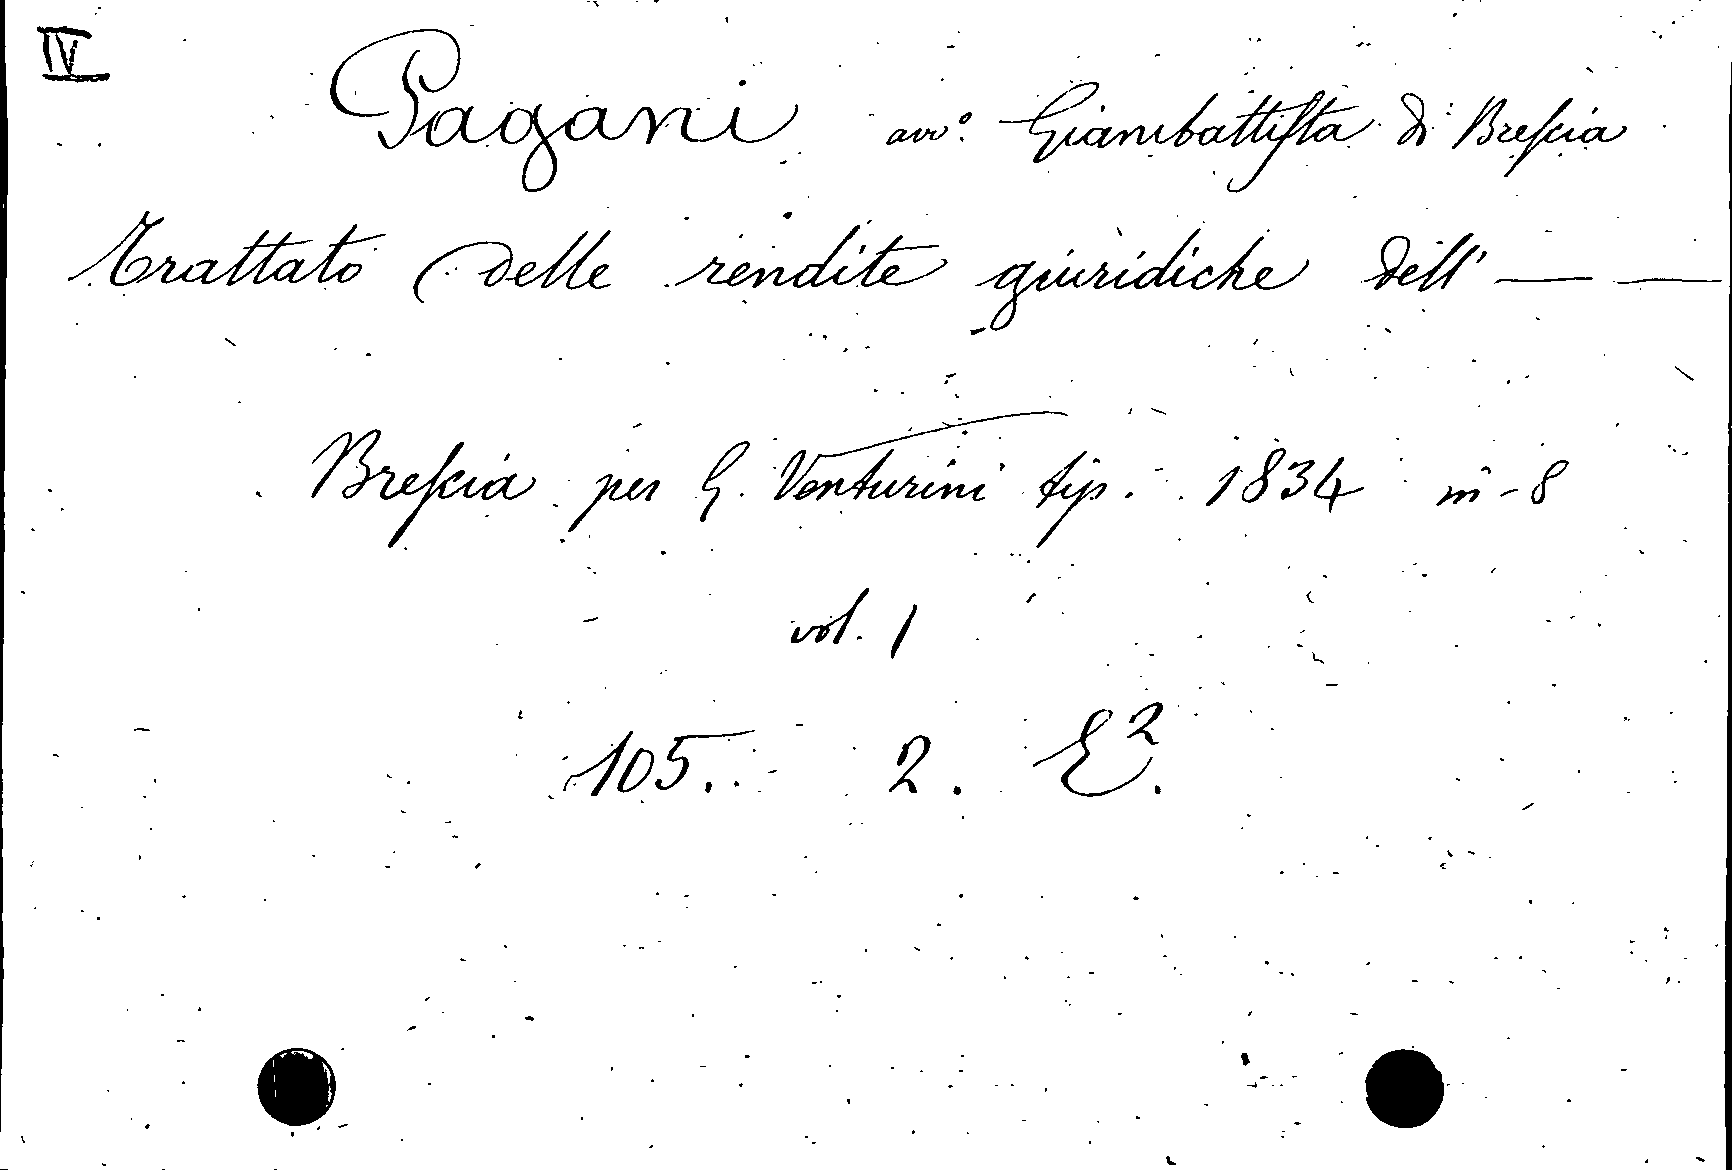 IV
Pagani avv.º Giambattiſta di Breſcia
Trattato delle rendite giuridiche dell' — —
Breſcia per G. Venturini tip. 1834 in-8
vol. 1
105. 2. E².